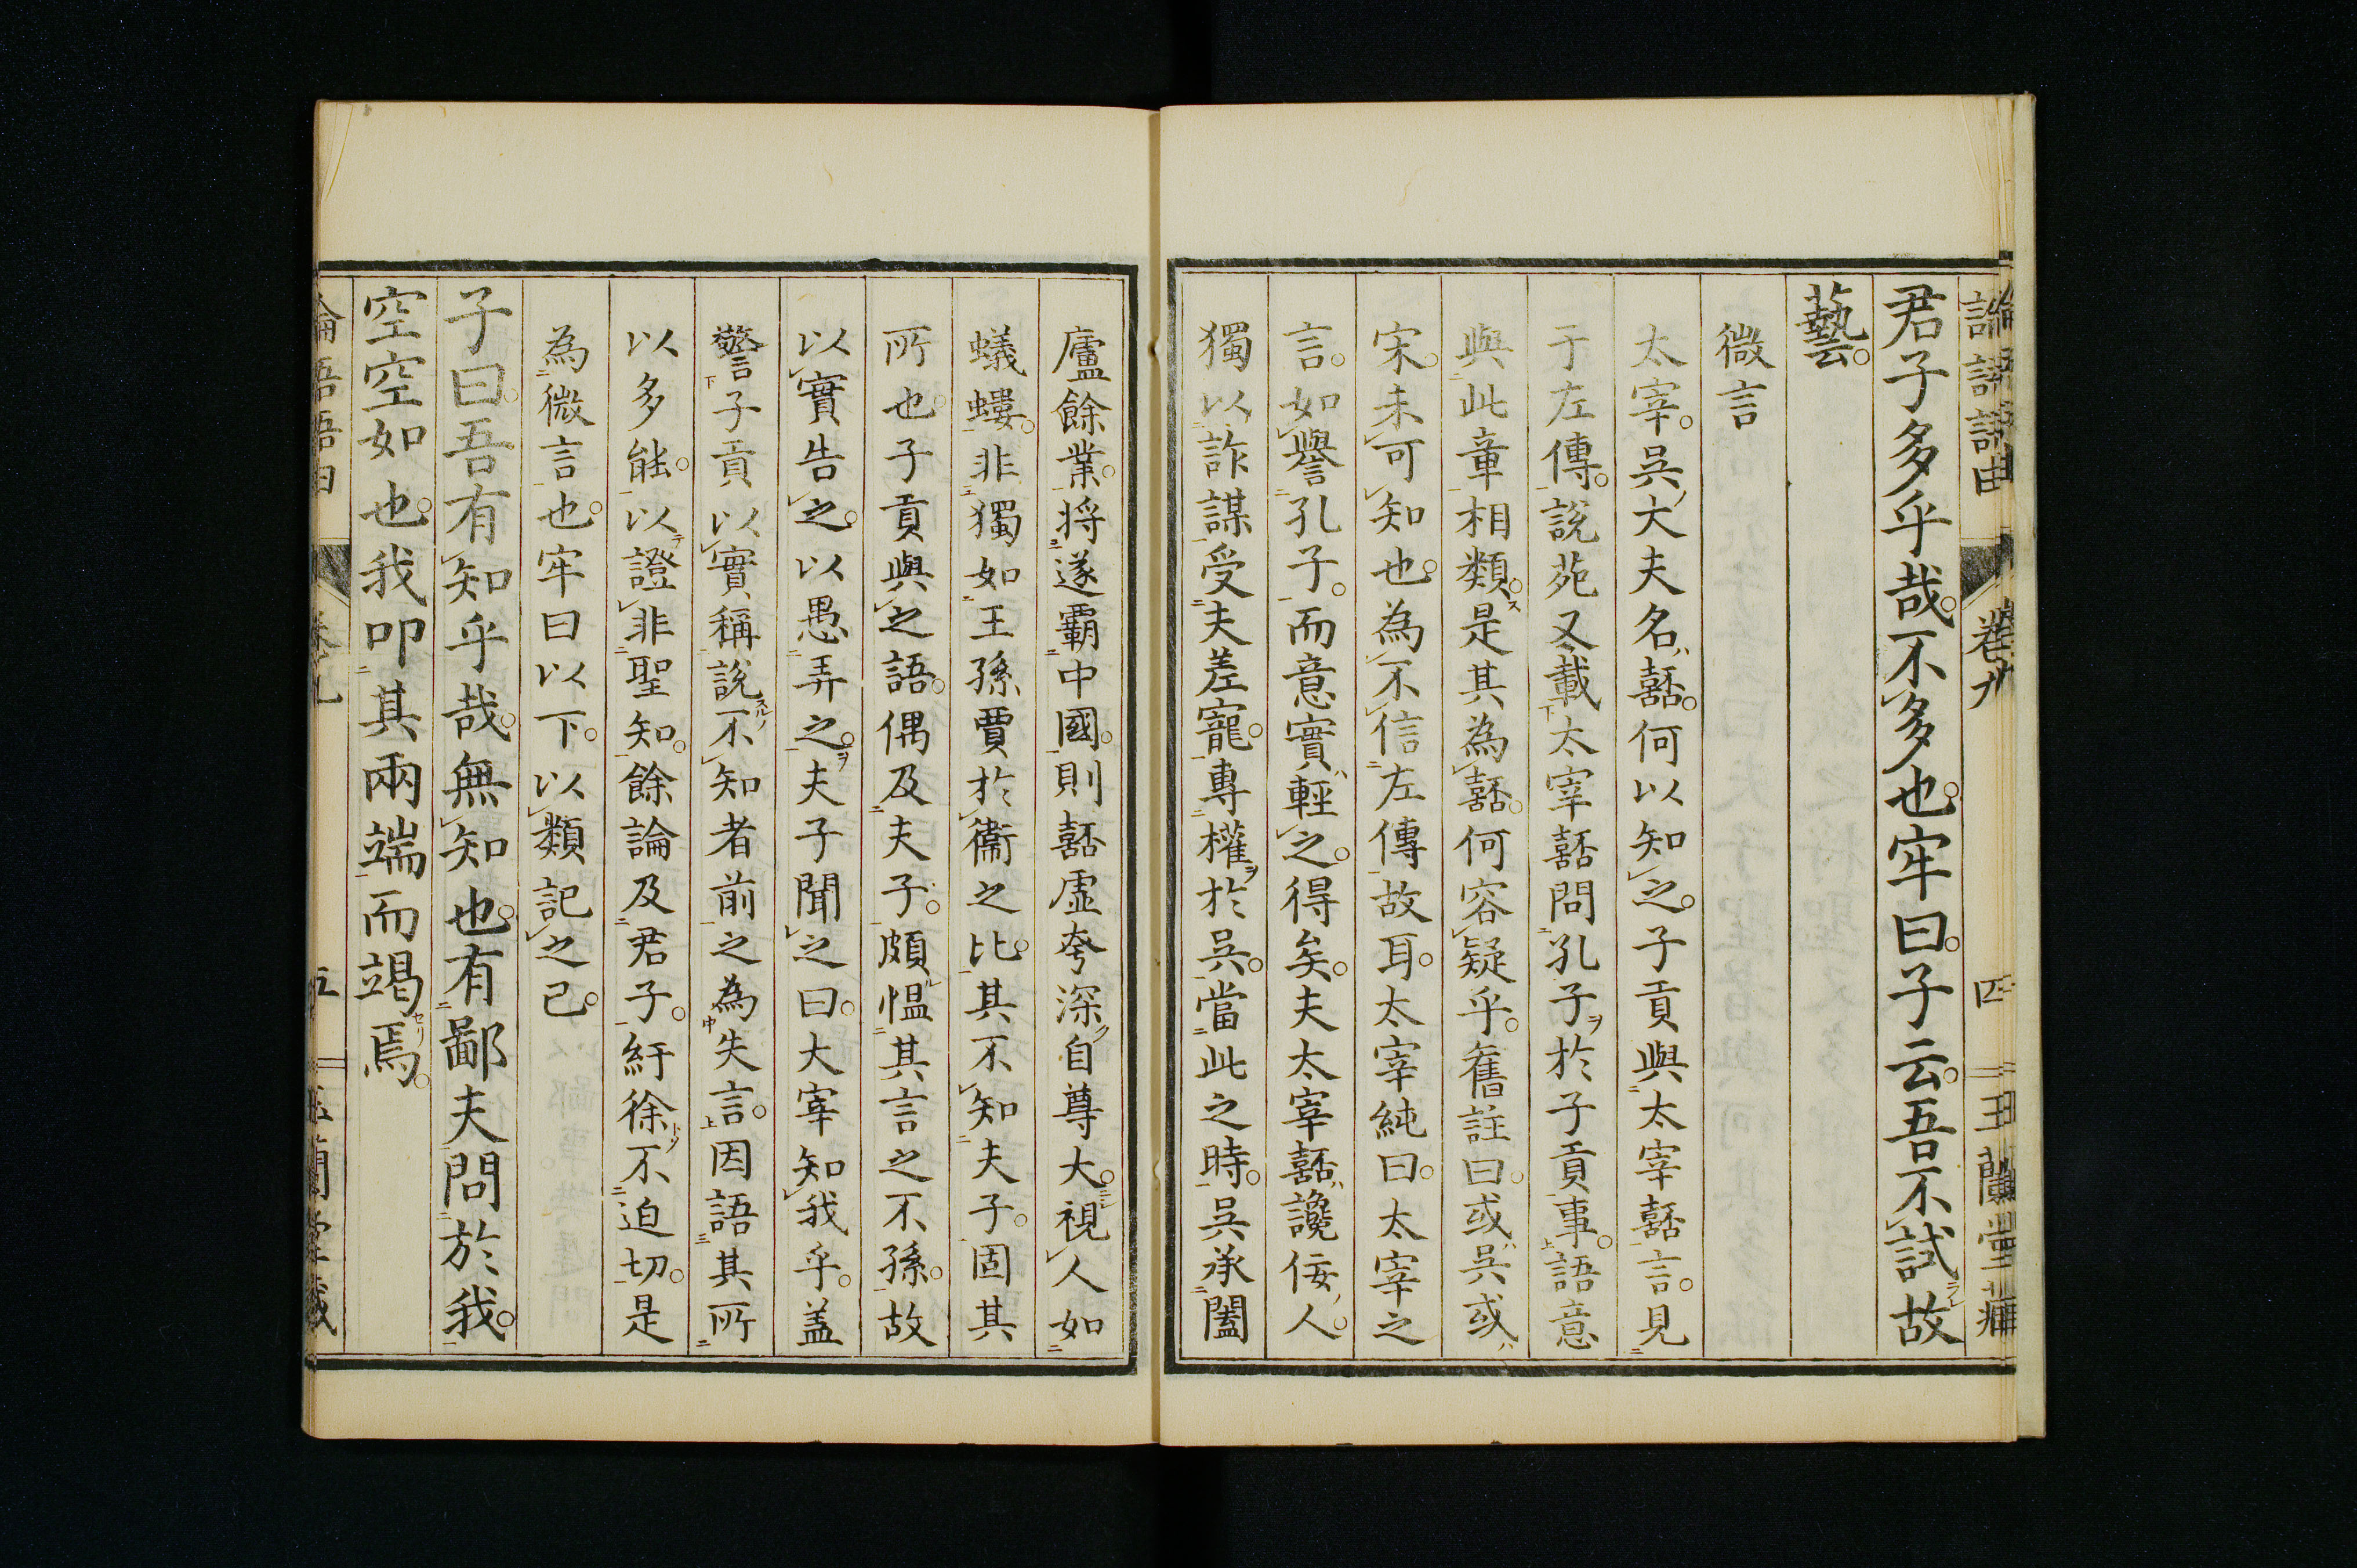 論語語由 卷九 四 玉蘭堂藏
君子多乎哉。不多也。牢曰。子云。吾不試故
藝。
微言
太宰。吳大夫名嚭。何以知之。子貢與太宰嚭言。見
于左傳。說苑又載太宰嚭問孔子於子貢事。語意
與此章相類。是其為嚭。何容疑乎。舊註曰。或吳或
宋。未可知也。為不信左傳故耳。太宰純曰。太宰之
言。如譽孔子。而意實輕之。得矣。夫太宰嚭讒佞人。
獨以詐謀受夫差寵。專權於吳。當此之時。吳承闔
廬餘業。將遂霸中國。則嚭虛夸深自尊大。視人如
蟻螻。非獨如王孫賈於衞之比。其不知夫子。固其
所也。子貢與之語。偶及夫子。頗慍其言之不孫。故
以實告之。以愚弄之。夫子聞之曰。大宰知我乎。盖
警子貢以實稱說不知者前之為失言。因語其所
以多能。以證非聖知。餘論及君子。紆徐不迫切。是
為微言也。牢曰以下。以類記之已。
子曰。吾有知乎哉。無知也。有鄙夫問於我。
空空如也。我叩其兩端而竭焉。
論語語由 卷九 五 玉蘭堂藏